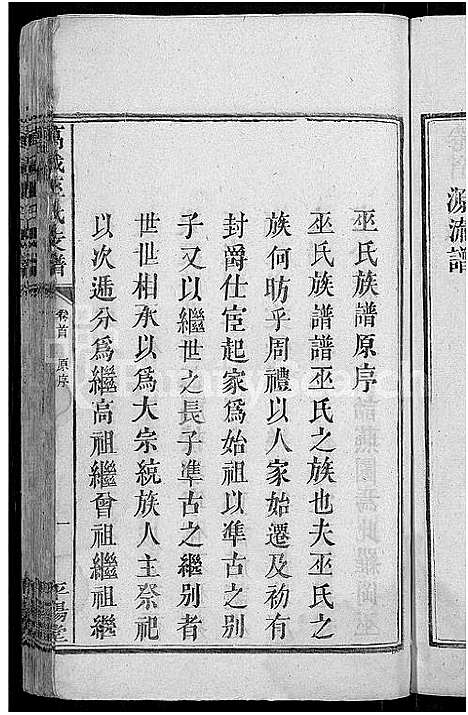 源流譜
巫氏族譜原序
巫氏族譜譜巫氏之族也夫巫氏之
族何昉乎周禮以人家始遷及初有
封爵仕宦起家爲始祖以準古之別
子又以繼世之長子準古之繼別者
世世相承以爲大宗統族人主祭祀
以次遞分爲繼高祖繼曾祖繼祖繼
萬載巫氏支譜
卷首 原序
一
平陽堂